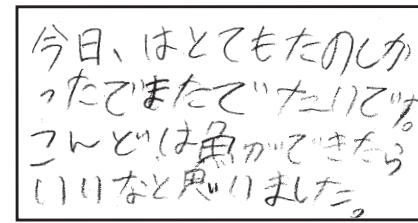 今日、はとてもたのしか
ったでまたでたいです。
こんどは魚ができたら
いいなと思いました。